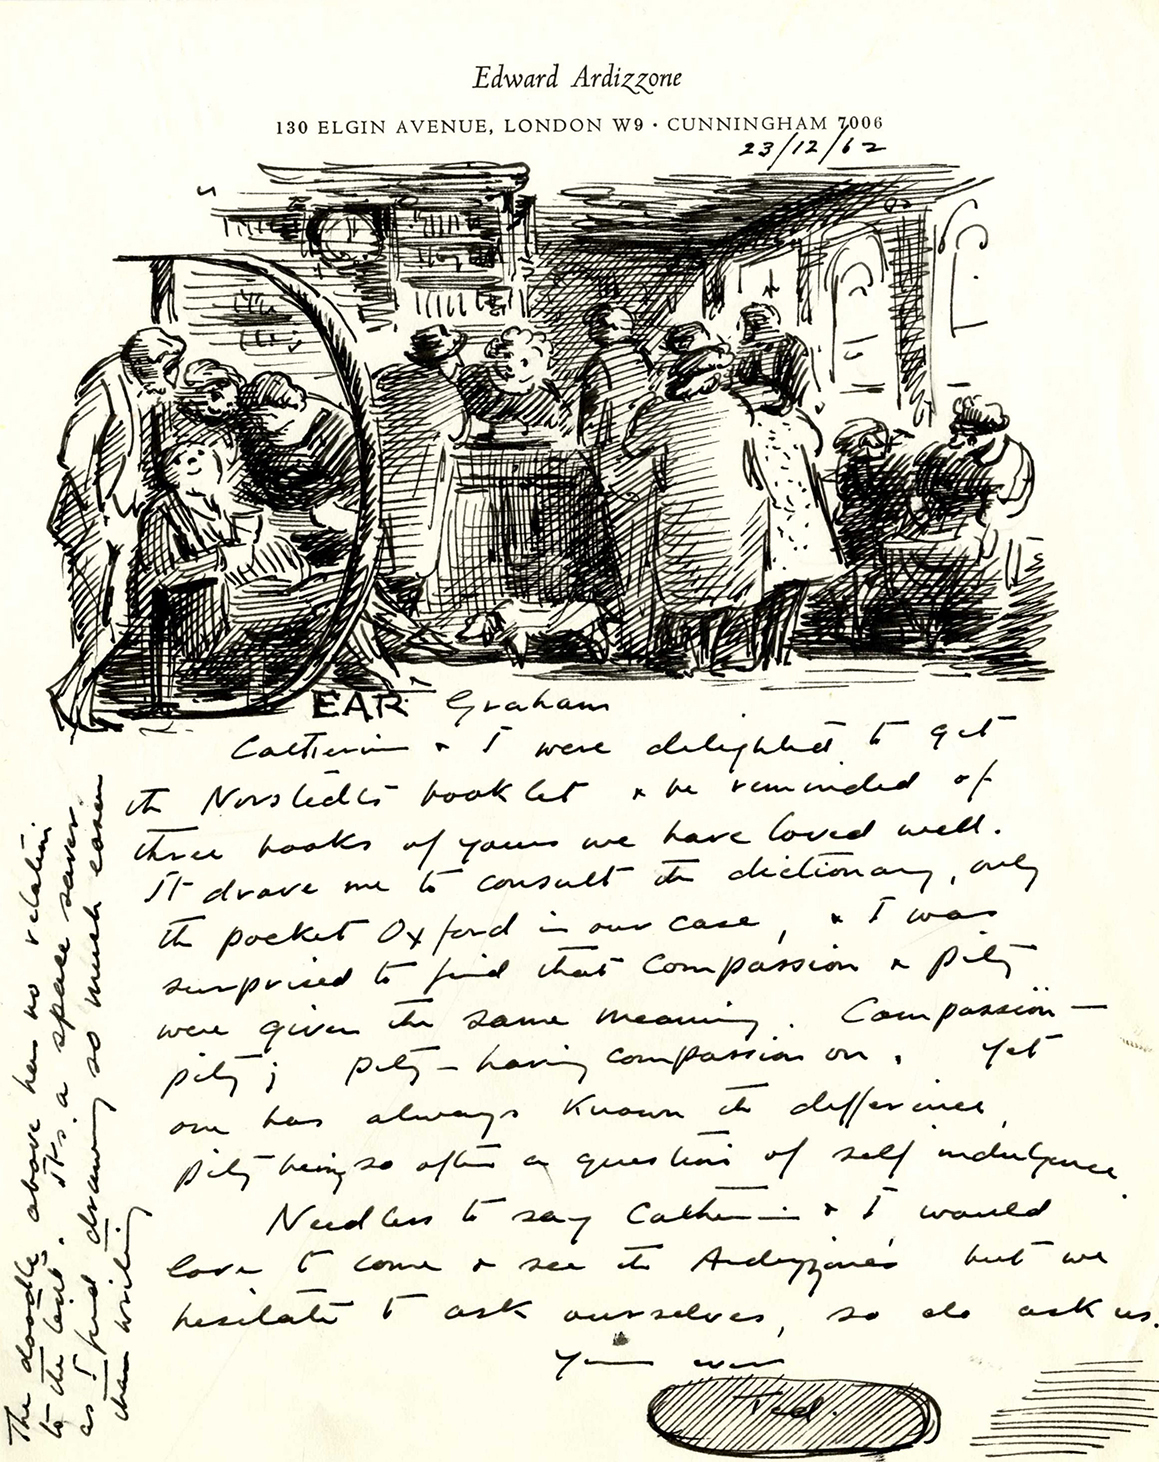 Edward Ardizzone
130 ELGIN AVENUE, LONDON W9 · CUNNINGHAM 7006
23/12/62
DEAR Graham
Catherine & I were delighted to get
the Norstedts booklet & be reminded of
three books of yours we have loved well.
It drove me to consult the dictionary, only
the pocket Oxford in our case, & I was
surprised to find that compassion & pity
were given the same meaning. Compassion —
pity; pity — having compassion on. Yet
one has always known the difference,
pity being so often a question of self indulgence.
Needless to say Catherine & I would
love to come & see the Ardizzone's but we
hesitate to ask ourselves, so do ask us.
Yours ever
Ted.
The doodle above has no relation
to the text. Its a space saver
as I find drawing so much easier
than writing